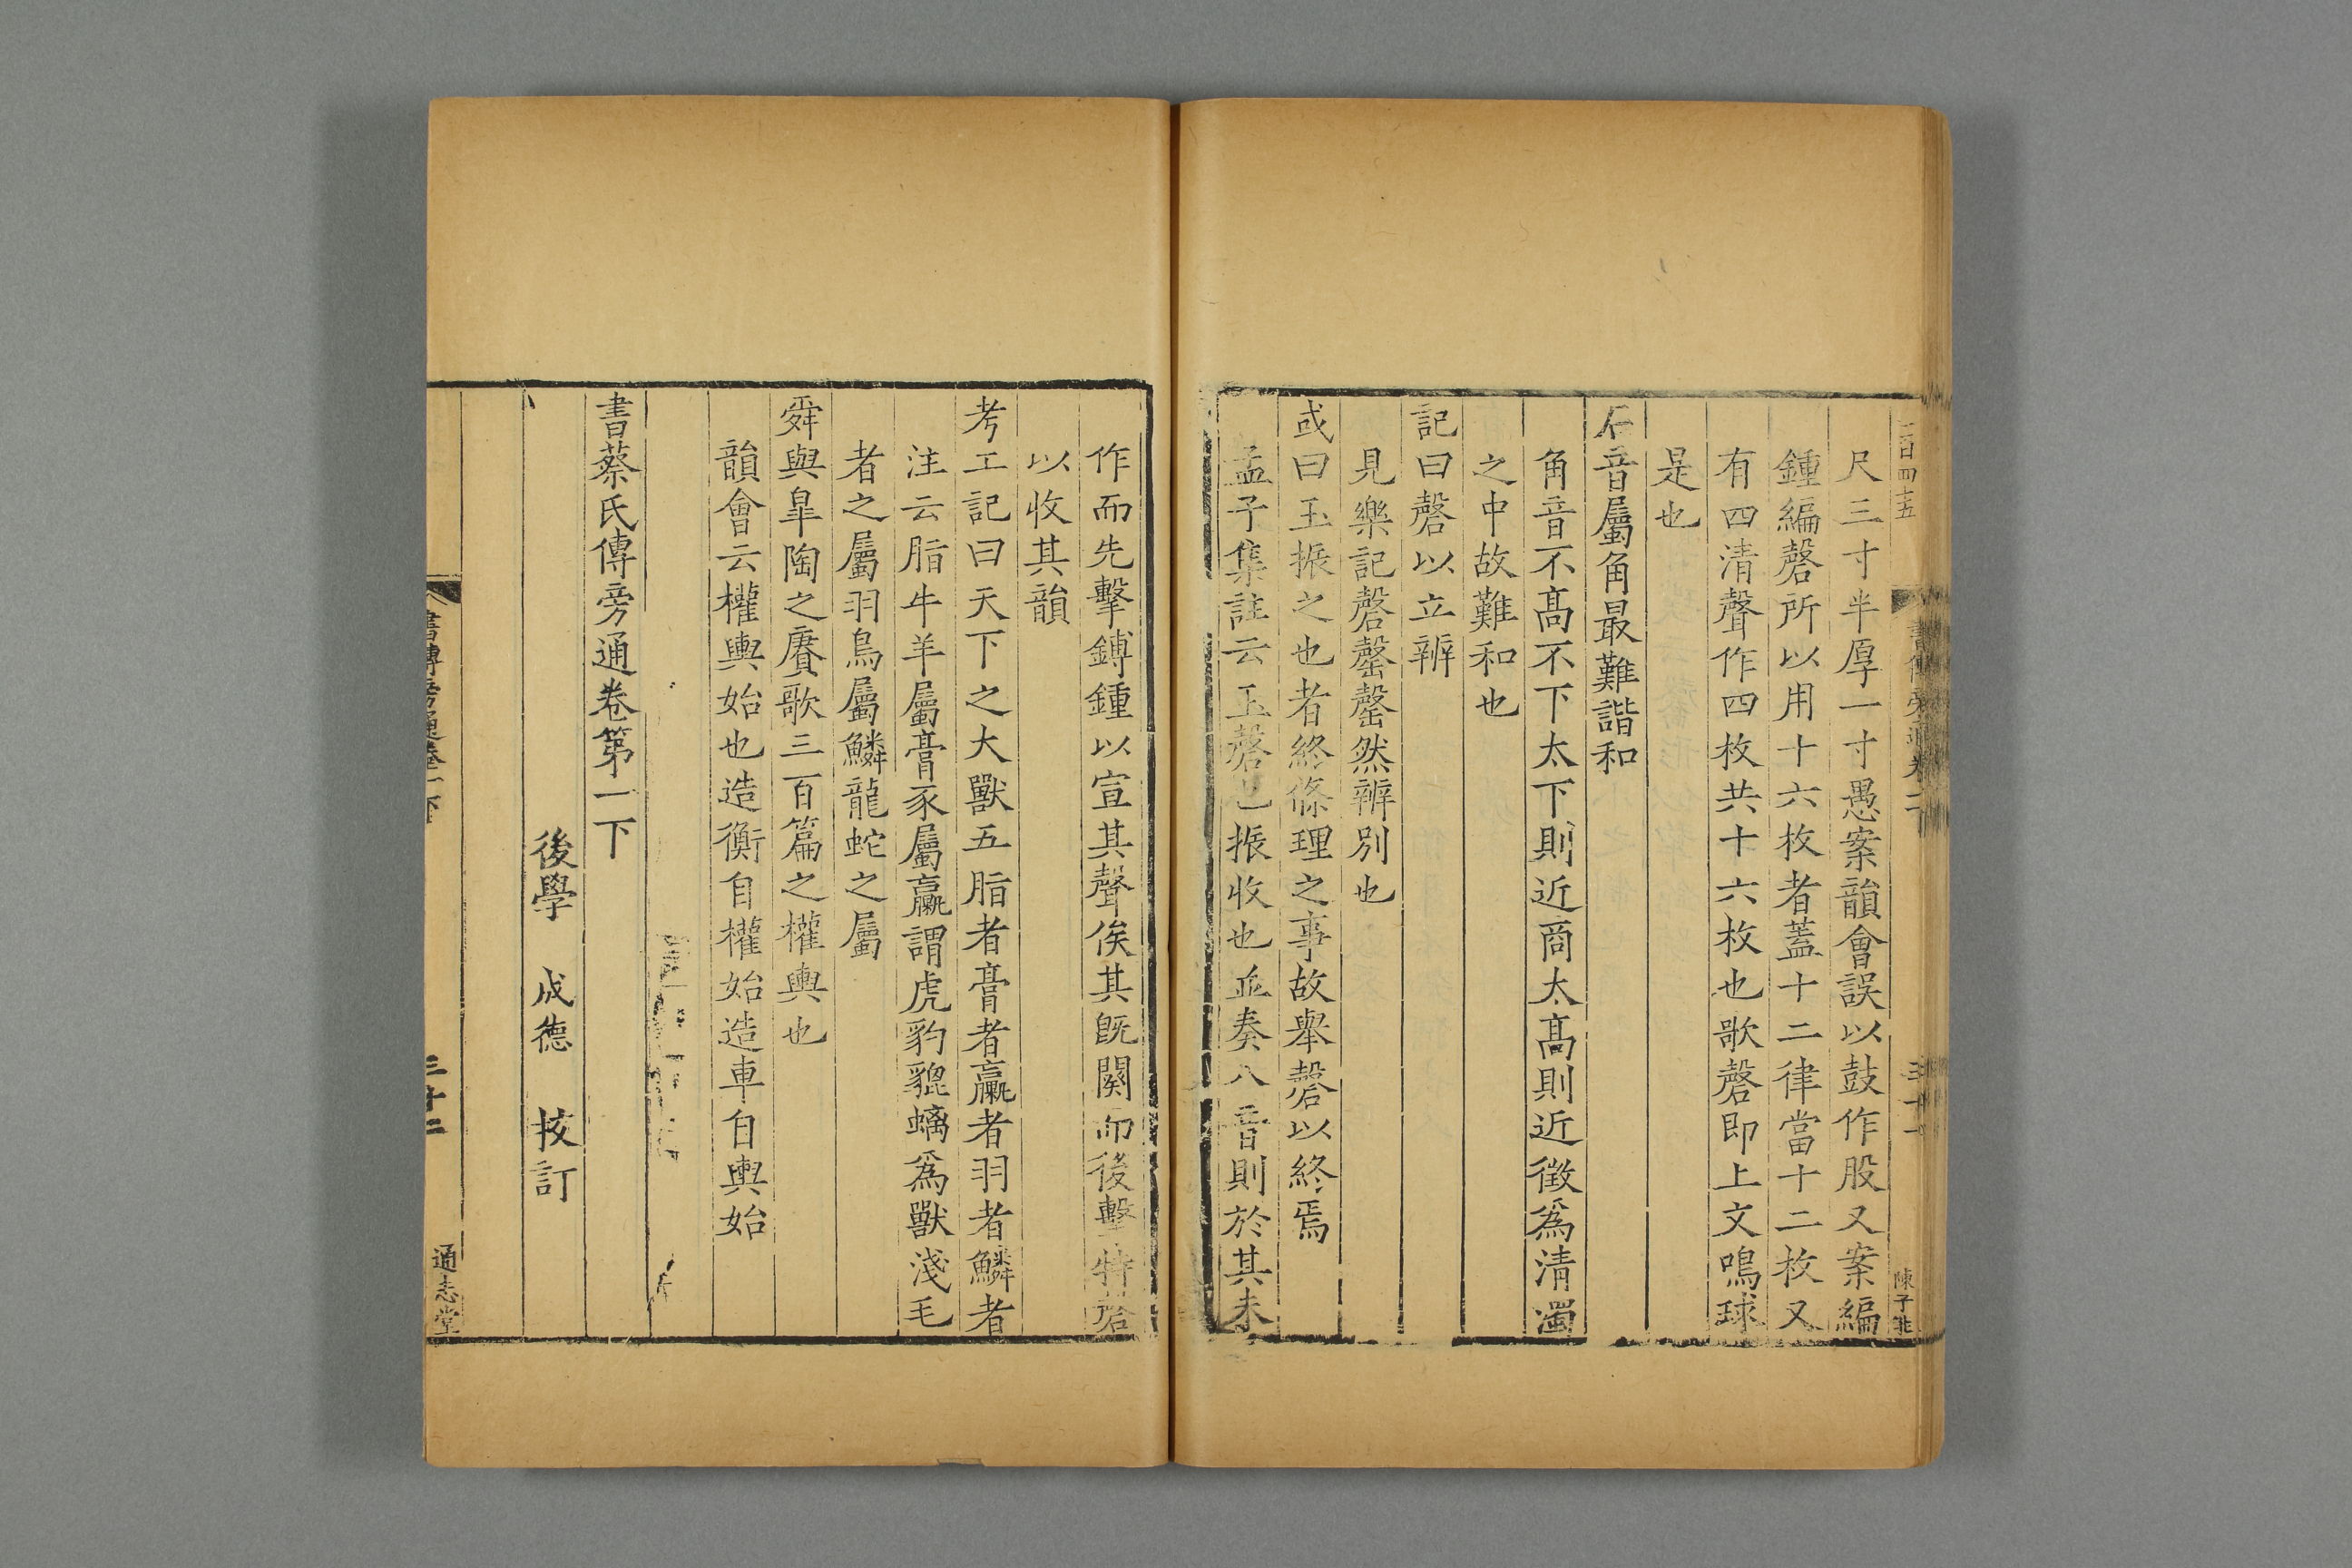 尺三寸半厚一寸愚案韻會誤以鼓作股又案編
鍾編磬所以用十六枚者蓋十二律當十二枚又
有四清聲作四枚共十六枚也歌磬即上文鳴球
是也
石音屬角最難諧和
角音不髙不下太下則近商太髙則近徵爲清濁
之中故難和也
記曰磬以立辨
見樂記磬罄罄然辨別也
或曰玉振之也者終條理之事故舉磬以終焉
孟子集註云玉磬也振收也並奏八音則於其未
作而先擊鎛鍾以宣其聲俟其旣闋而後擊特磬
以收其韻
考工記曰天下之大獸五脂者膏者臝者羽者鱗者
注云脂牛羊屬膏豕屬臝謂虎豹貔螭爲獸淺毛
者之屬羽鳥屬鱗龍蛇之屬
舜與皐陶之賡歌三百篇之權輿也
韻會云權輿始也造衡自權始造車自輿始
書蔡氏傳旁通卷第一下
後學 成德 挍訂
通志堂